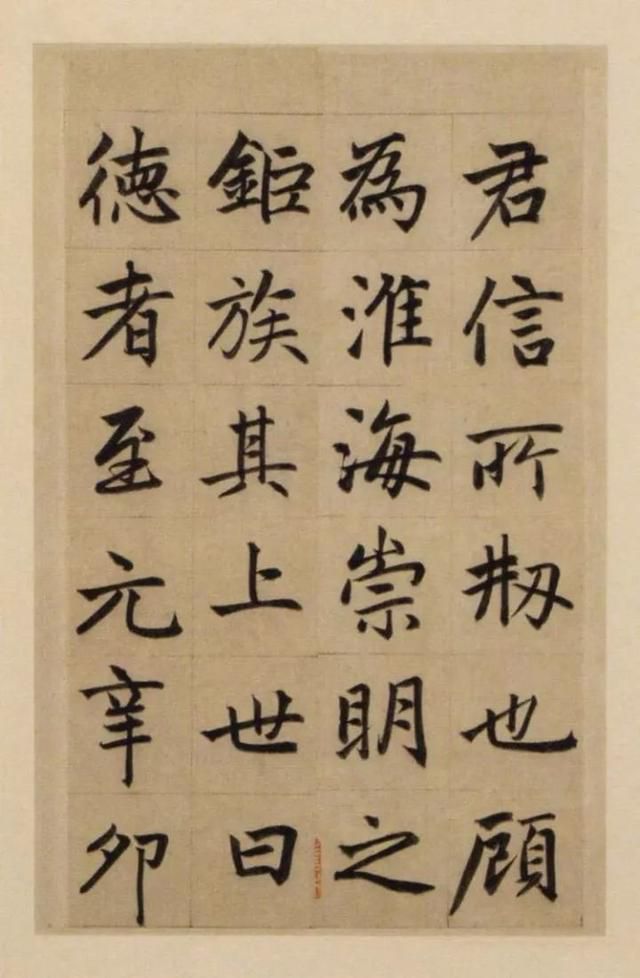 君信所刱也顾
為淮海崇明之
鉅族其上世曰
徳者至元辛卯